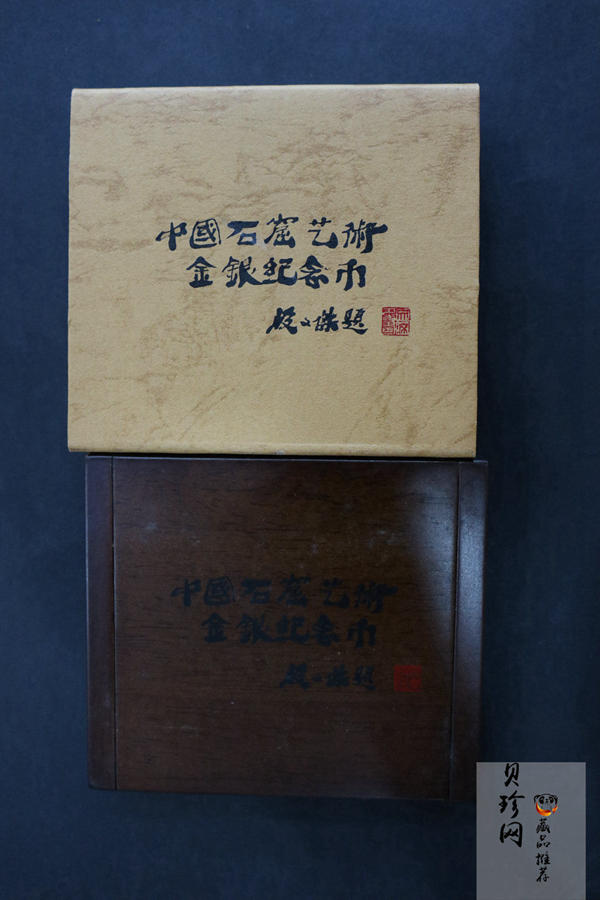 中國石窟艺術
金銀纪念币
段文傑題
中國石窟艺術
金銀纪念币
段文傑題
贝珍网
藏品推荐